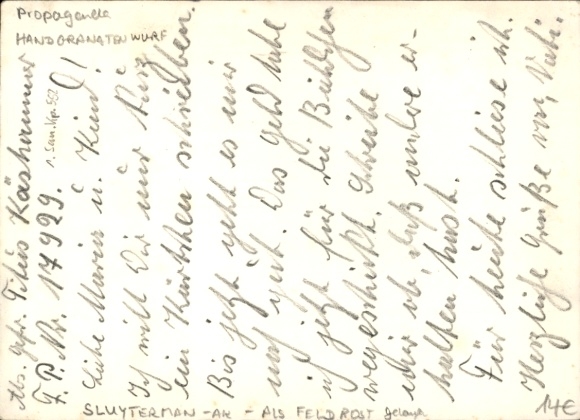 Propaganda
HANDGRANATENWURF
Abs. Gefr. Titus Kashammer
F.P. Nr. 17929. 1. San. Kp. 552
Liebe Maria u. Kind!
Ich will Dir nur kurz
ein Kärtchen schreiben.
Bis jetzt geht es mir
noch gut. Das Geld habe
ich jetzt für die
weggeschickt. Schreibe
mir ob Du es er-
halten hast.
Für heute schliese ich.
Herzliche Grüße von
SLUYTERMAN - AK - ALS FELDPOST
14€